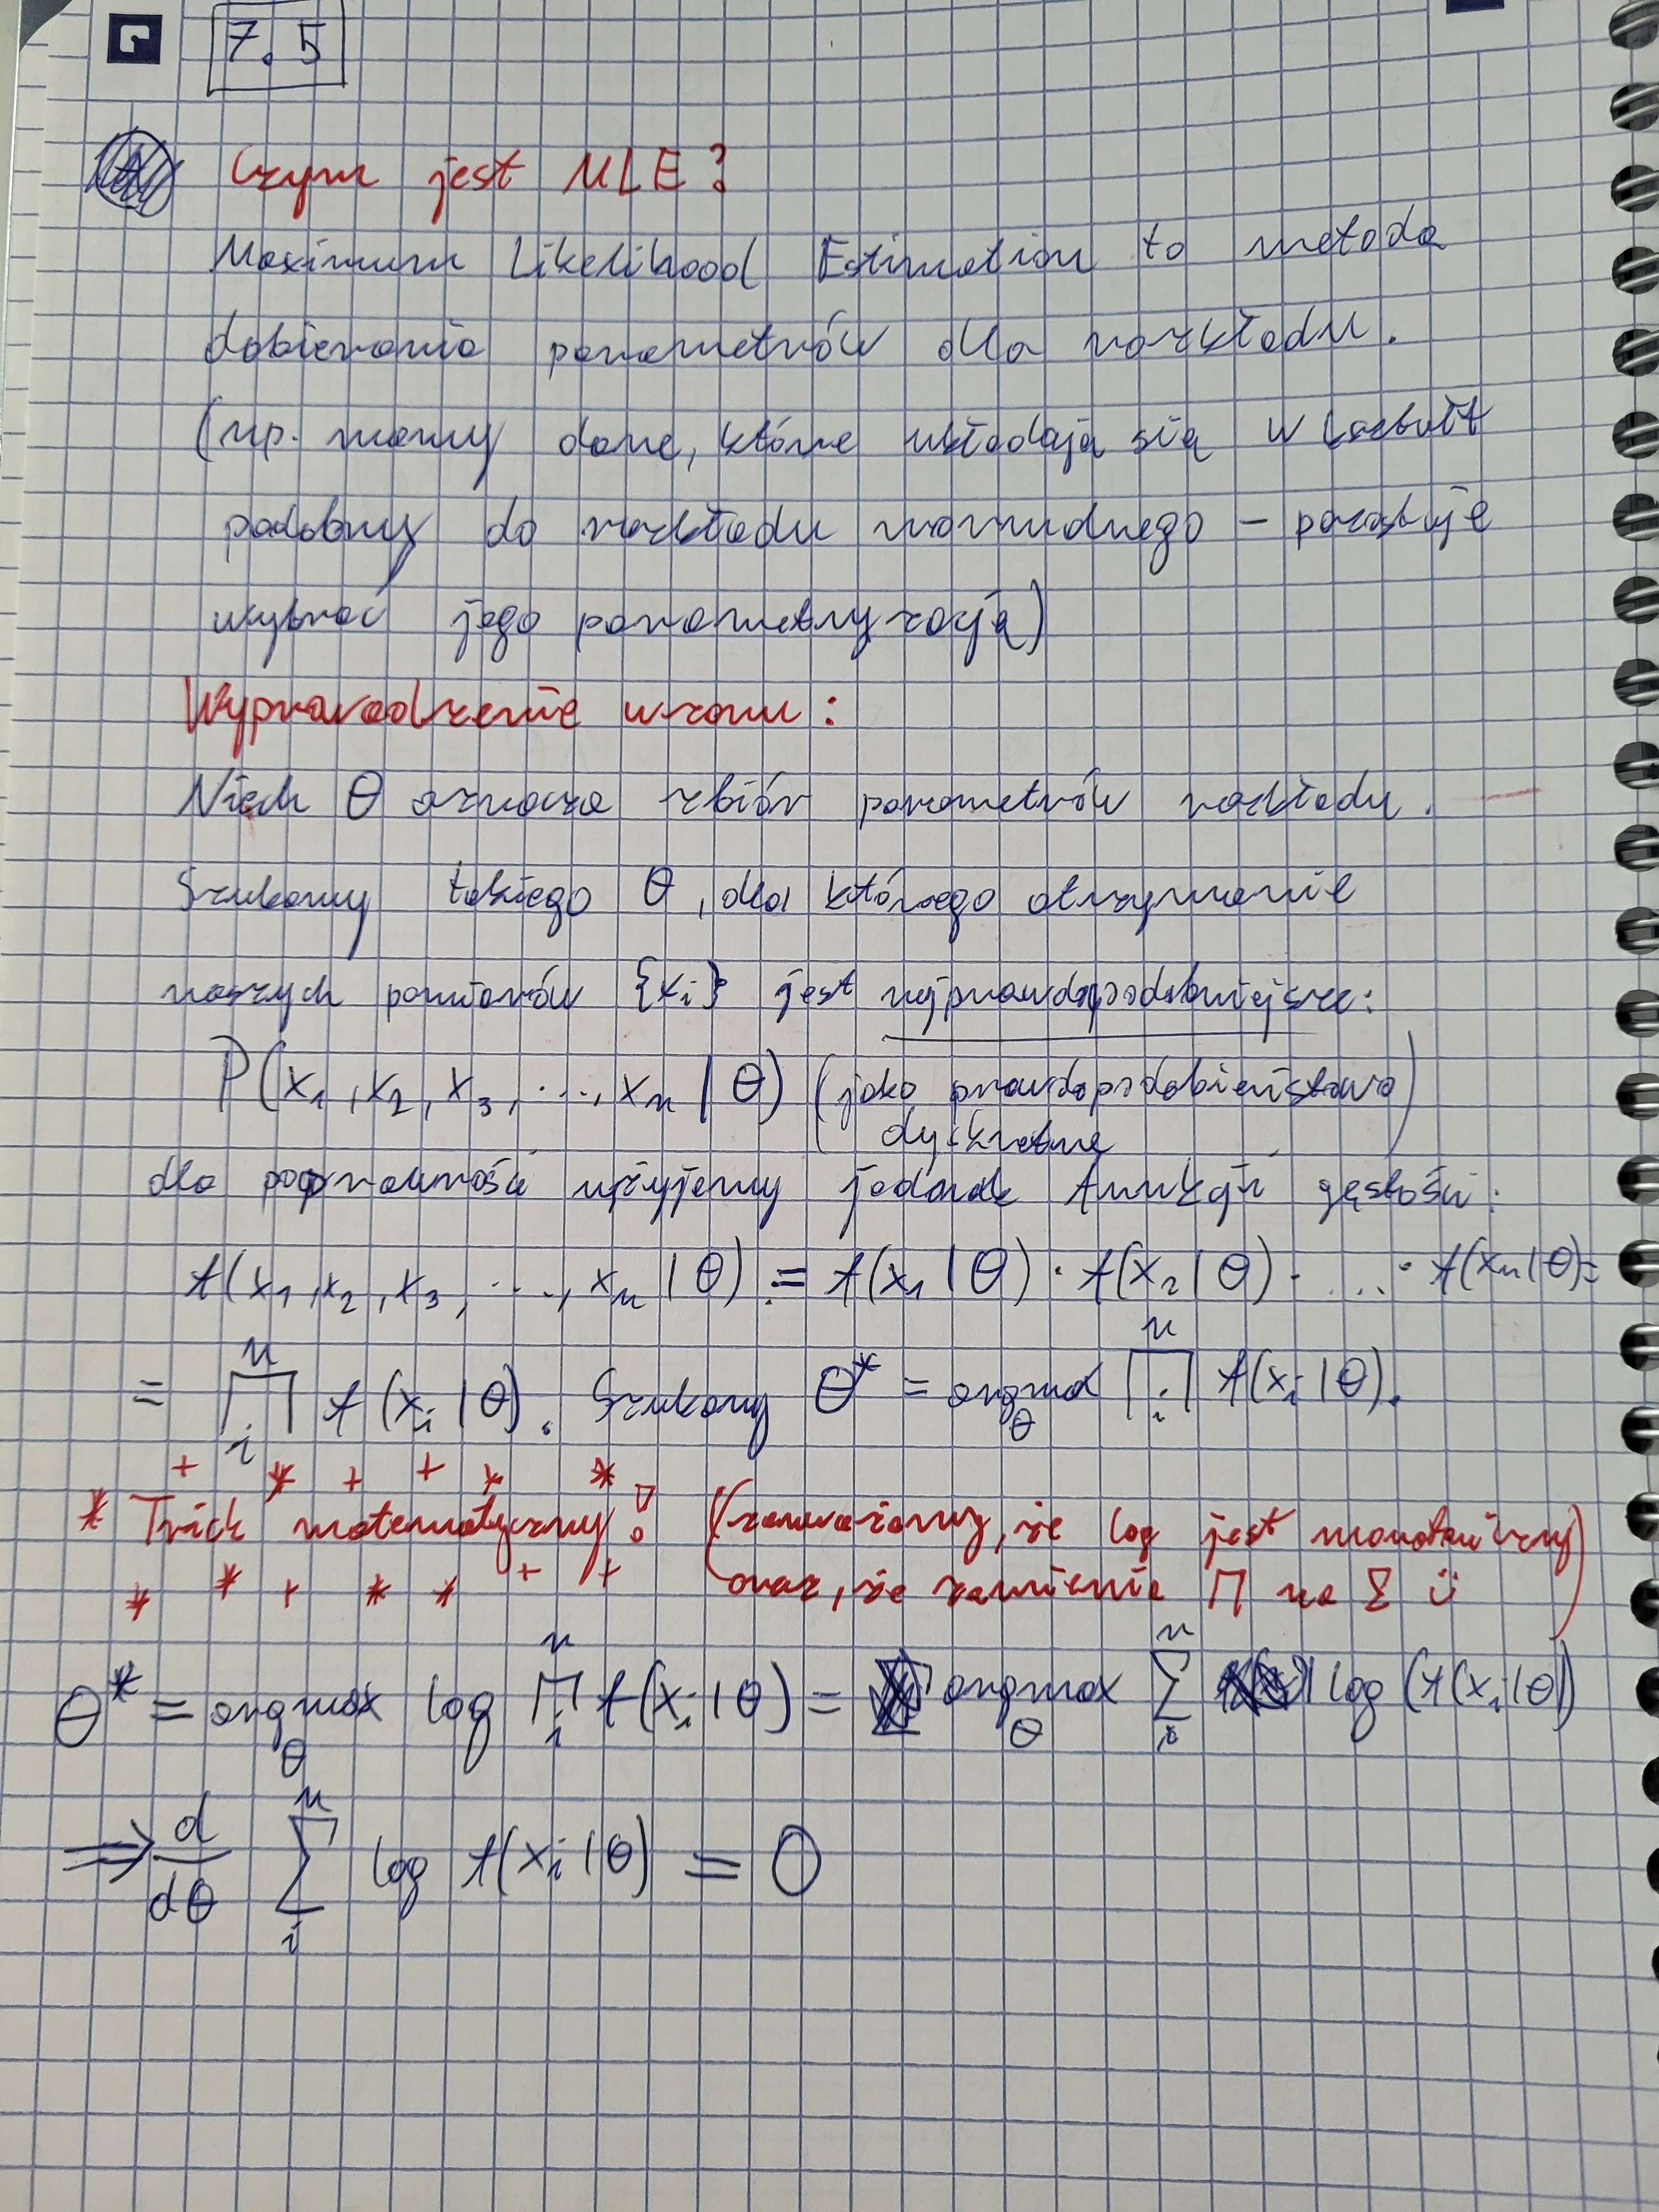 7.5
Czym jest MLE?
Maximum Likelihood Estimation to metoda
dobierania parametrów dla rozkładu.
(np. mamy dane, które układają się w kształt
podobny do rozkładu normalnego – pozostaje
wybrać jego parametryzację)
Wyprowadzenie wzoru:
Niech θ oznacza zbiór parametrów rozkładu.
Szukamy takiego θ, dla którego otrzymanie
naszych pomiarów {xᵢ} jest najprawdopodobniejsze:
P(x₁, x₂, x₃, ..., xₙ | θ) (jako prawdopodobieństwo
dyskretne)
dla poprawności użyjemy jednak funkcji gęstości:
f(x₁, x₂, x₃, ..., xₙ | θ) = f(x₁ | θ) · f(x₂ | θ) · ... · f(xₙ | θ) =
= ∏ᵢⁿ f(xᵢ | θ). Szukamy θ* = argmax_θ ∏ᵢⁿ f(xᵢ | θ).
* Trick matematyczny! (zauważamy, że log jest monotoniczny
oraz, że zamienia ∏ na Σ ü)
θ* = argmax_θ log ∏ᵢⁿ f(xᵢ | θ) = argmax_θ Σᵢⁿ log (f(xᵢ | θ)
⇒ d/dθ Σᵢⁿ log f(xᵢ | θ) = 0